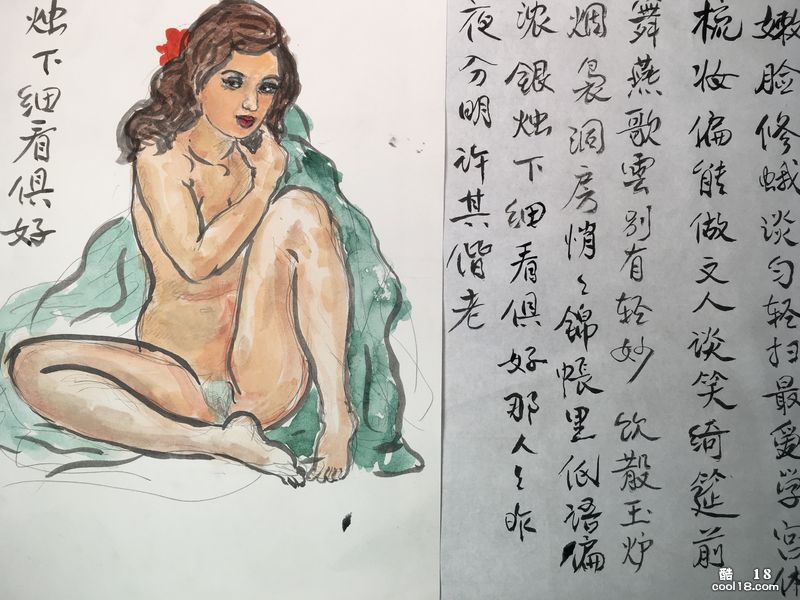 嫩脸修蛾淡匀轻扫最爱学宫体
梳妆偏能做文人谈笑绮筵前
舞燕歌雲别有轻妙 饮散玉炉
烟袅洞房悄々錦帳里低语偏
浓银烛下细看俱好那人々昨
夜分明许其偕老
烛下细看俱好
酷 18
cool18.com